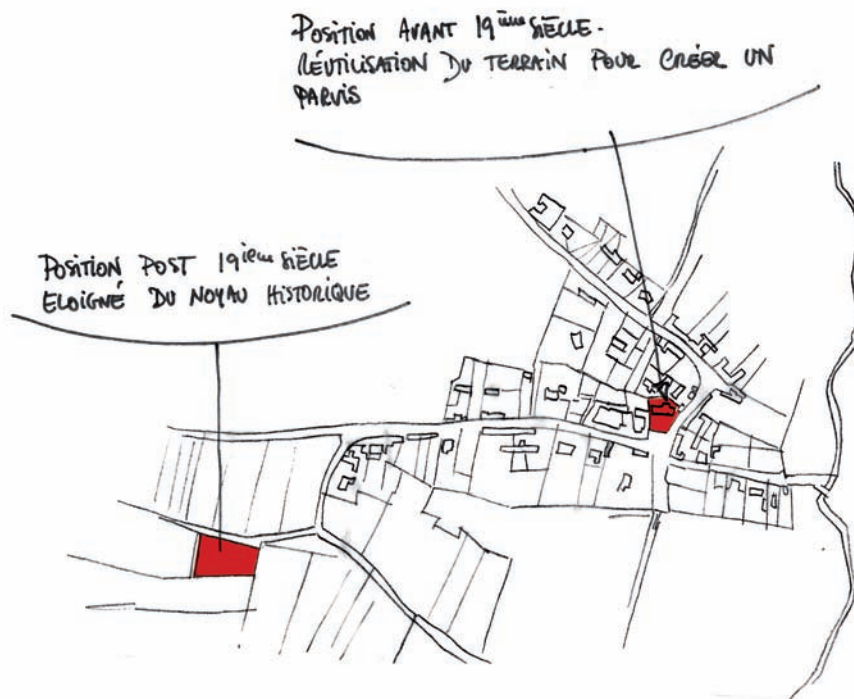 POSITION AVANT 19ième SIÈCLE.
RÉUTILISATION DU TERRAIN POUR CRÉER UN
PARVIS
POSITION POST 19ième SIÈCLE
ELOIGNÉ DU NOYAU HISTORIQUE